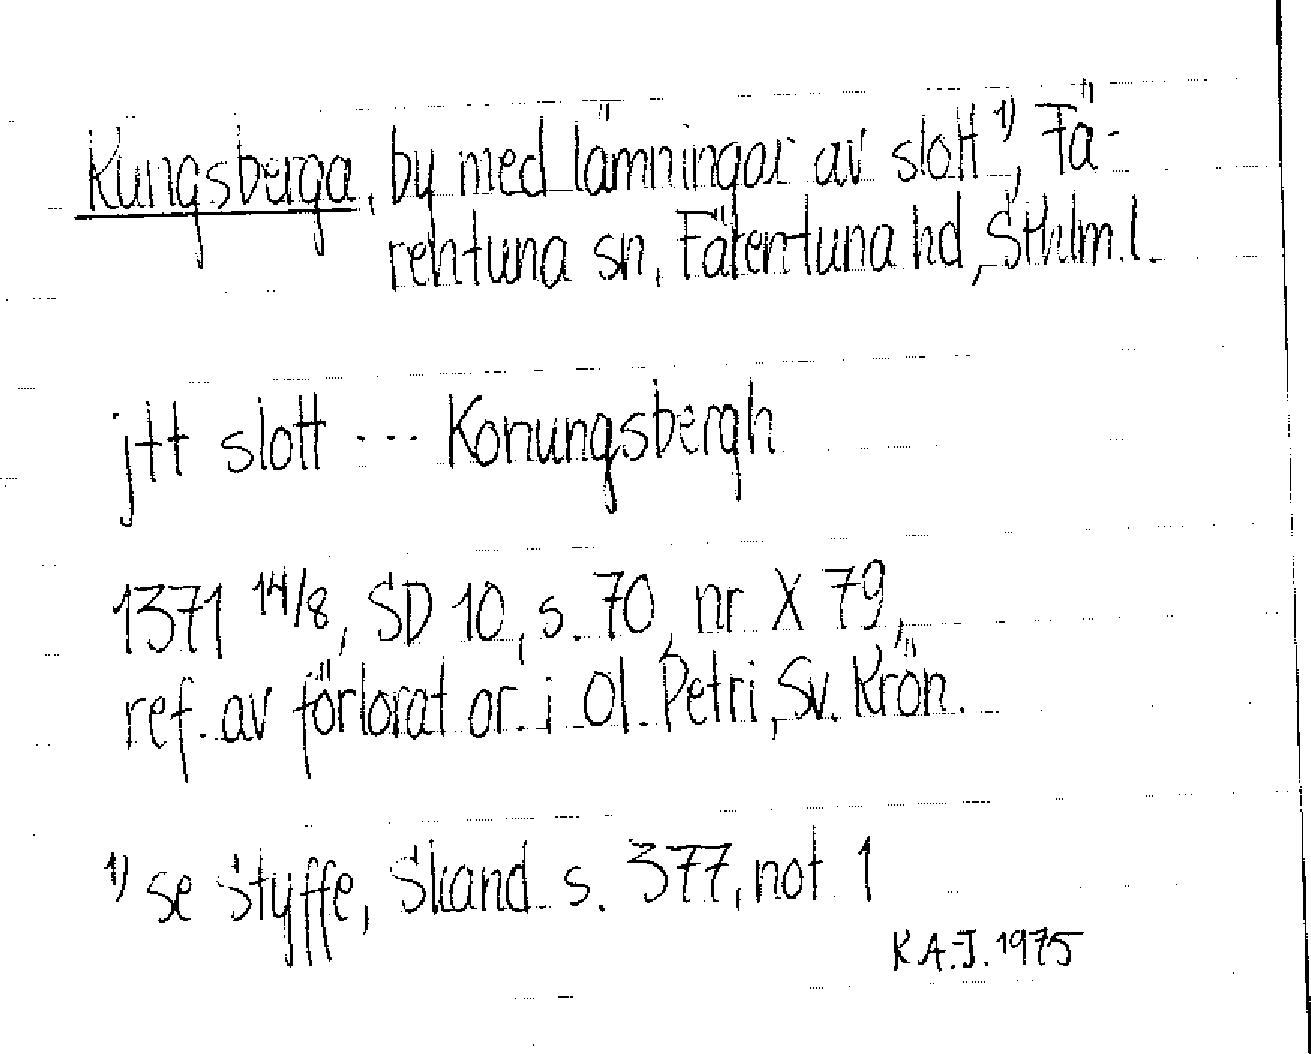 Kungsberga, by med lämningar av slott 1), Fä-
rentuna sn, Färentuna hd, Sthlm.l.
jtt slott --- Konungsbergh
1371 14/8, SD 10, s. 70, nr X 79,
ref. av förlorat or. i Ol. Petri, Sv. Krön.
1) se Styffe, Skand. s. 377, not 1
K A.-J. 1975